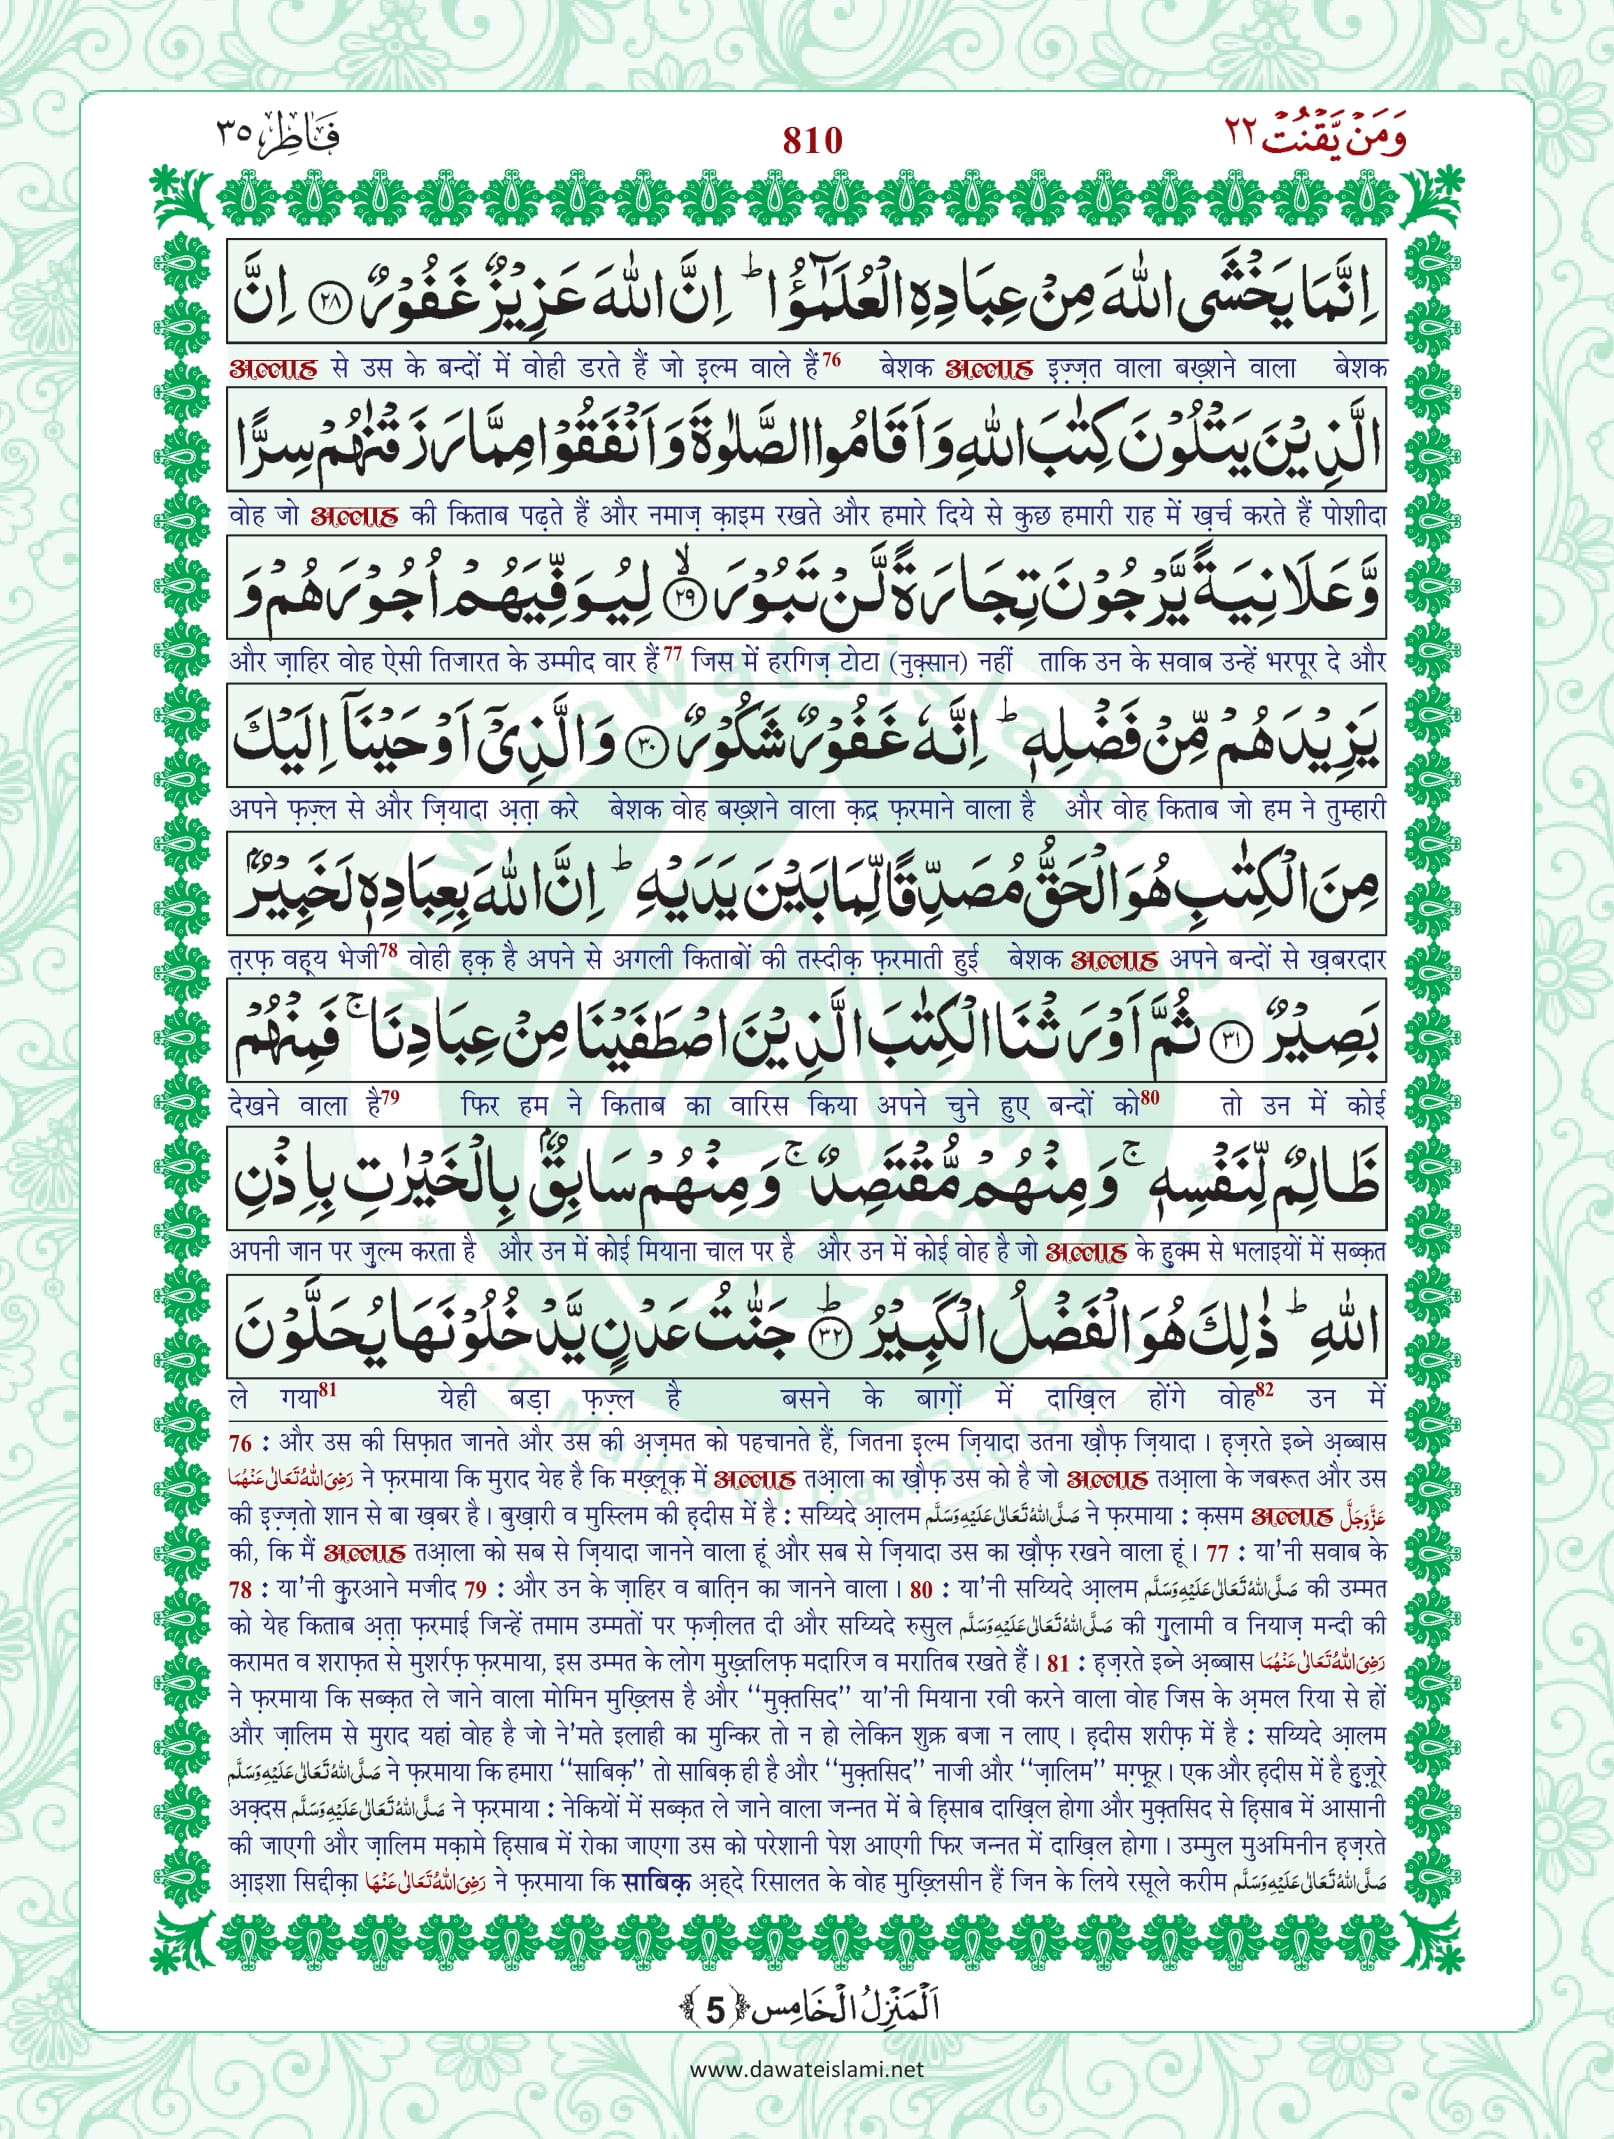 وَمَنْ يَّقْنُتْ ٢٢ 810 فَاطِر ٣٥
اِنَّمَا يَخْشَى اللّٰهَ مِنْ عِبَادِهِ الْعُلَمٰٓؤُا ؕ اِنَّ اللّٰهَ عَزِيْزٌ غَفُوْرٌ ﴿٢٨﴾ اِنَّ
अल्लाह से उस के बन्दों में वोही डरते हैं जो इल्म वाले हैं76 बेशक अल्लाह इ़ज़्ज़त वाला बख़्शने वाला बेशक
الَّذِيْنَ يَتْلُوْنَ كِتٰبَ اللّٰهِ وَاَقَامُوا الصَّلٰوةَ وَاَنْفَقُوْا مِمَّا رَزَقْنٰهُمْ سِرًّا
वोह जो अल्लाह की किताब पढ़ते हैं और नमाज़ क़ाइम रखते और हमारे दिये से कुछ हमारी राह में ख़र्च करते हैं पोशीदा
وَّعَلَانِيَةً يَّرْجُوْنَ تِجَارَةً لَّنْ تَبُوْرَ ۙ﴿٢٩﴾ لِيُوَفِّيَهُمْ اُجُوْرَهُمْ وَ
और ज़ाहिर वोह ऐसी तिजारत के उम्मीद वार हैं77 जिस में हरगिज़ टोटा (नुक़्सान) नहीं ताकि उन के सवाब उन्हें भरपूर दे और
يَزِيْدَهُمْ مِّنْ فَضْلِهٖ ؕ اِنَّهٗ غَفُوْرٌ شَكُوْرٌ ﴿٣٠﴾ وَالَّذِيْٓ اَوْحَيْنَاۤ اِلَيْكَ
अपने फ़ज़्ल से और ज़ियादा अ़त़ा करे बेशक वोह बख़्शने वाला क़द्र फ़रमाने वाला है और वोह किताब जो हम ने तुम्हारी
مِنَ الْكِتٰبِ هُوَ الْحَقُّ مُصَدِّقًا لِّمَا بَيْنَ يَدَيْهِ ؕ اِنَّ اللّٰهَ بِعِبَادِهٖ لَخَبِيْرٌۢ
त़रफ़ वह़्य भेजी78 वोही ह़क़ है अपने से अगली किताबों की तस्दीक़ फ़रमाती हुई बेशक अल्लाह अपने बन्दों से ख़बरदार
بَصِيْرٌ ﴿٣١﴾ ثُمَّ اَوْرَثْنَا الْكِتٰبَ الَّذِيْنَ اصْطَفَيْنَا مِنْ عِبَادِنَا ۚ فَمِنْهُمْ
देखने वाला है79 फिर हम ने किताब का वारिस किया अपने चुने हुए बन्दों को80 तो उन में कोई
ظَالِمٌ لِّنَفْسِهٖ ۚ وَمِنْهُمْ مُّقْتَصِدٌ ۚ وَمِنْهُمْ سَابِقٌۢ بِالْخَيْرٰتِ بِاِذْنِ
अपनी जान पर ज़ुल्म करता है और उन में कोई मियाना चाल पर है और उन में कोई वोह है जो अल्लाह के हुक्म से भलाइयों में सब्क़त
اللّٰهِ ؕ ذٰلِكَ هُوَ الْفَضْلُ الْكَبِيْرُ ؕ﴿٣٢﴾ جَنّٰتُ عَدْنٍ يَّدْخُلُوْنَهَا يُحَلَّوْنَ
ले गया81 येही बड़ा फ़ज़्ल है बसने के बाग़ों में दाख़िल होंगे वोह82 उन में
76 : और उस की सिफ़ात जानते और उस की अ़ज़मत को पहचानते हैं, जितना इल्म ज़ियादा उतना ख़ौफ़ ज़ियादा । ह़ज़रते इब्ने अ़ब्बास
رَضِیَ اللّٰهُ تَعَالٰی عَنْهُمَا ने फ़रमाया कि मुराद येह है कि मख़्लूक़ में अल्लाह तआ़ला का ख़ौफ़ उस को है जो अल्लाह तआ़ला के जबरूत और उस
की इ़ज़्ज़तो शान से बा ख़बर है । बुख़ारी व मुस्लिम की ह़दीस में है : सय्यिदे आ़लम صَلَّی اللّٰهُ تَعَالٰی عَلَیْهِ وَسَلَّم ने फ़रमाया : क़सम अल्लाह عَزَّوَجَلَّ
की, कि मैं अल्लाह तआ़ला को सब से ज़ियादा जानने वाला हूं और सब से ज़ियादा उस का ख़ौफ़ रखने वाला हूं । 77 : या'नी सवाब के
78 : या'नी क़ुरआने मजीद 79 : और उन के ज़ाहिर व बातिन का जानने वाला । 80 : या'नी सय्यिदे आ़लम صَلَّی اللّٰهُ تَعَالٰی عَلَیْهِ وَسَلَّم की उम्मत
को येह किताब अ़त़ा फ़रमाई जिन्हें तमाम उम्मतों पर फ़ज़ीलत दी और सय्यिदे रुसुल صَلَّی اللّٰهُ تَعَالٰی عَلَیْهِ وَسَلَّم की ग़ुलामी व नियाज़ मन्दी की
करामत व शराफ़त से मुशर्रफ़ फ़रमाया, इस उम्मत के लोग मुख़्तलिफ़ मदारिज व मरातिब रखते हैं । 81 : ह़ज़रते इब्ने अ़ब्बास رَضِیَ اللّٰهُ تَعَالٰی عَنْهُمَا
ने फ़रमाया कि सब्क़त ले जाने वाला मोमिन मुख़्लिस है और ‘‘मुक़्तसिद’’ या'नी मियाना रवी करने वाला वोह जिस के अ़मल रिया से हों
और ज़ालिम से मुराद यहां वोह है जो ने'मते इलाही का मुन्किर तो न हो लेकिन शुक्र बजा न लाए । ह़दीस शरीफ़ में है : सय्यिदे आ़लम
صَلَّی اللّٰهُ تَعَالٰی عَلَیْهِ وَسَلَّم ने फ़रमाया कि हमारा ‘‘साबिक़’’ तो साबिक़ ही है और ‘‘मुक़्तसिद’’ नाजी और ‘‘ज़ालिम’’ मग़्फ़ूर । एक और ह़दीस में है हुज़ूरे
अक़्दस صَلَّی اللّٰهُ تَعَالٰی عَلَیْهِ وَسَلَّم ने फ़रमाया : नेकियों में सब्क़त ले जाने वाला जन्नत में बे ह़िसाब दाख़िल होगा और मुक़्तसिद से ह़िसाब में आसानी
की जाएगी और ज़ालिम मक़ामे ह़िसाब में रोका जाएगा उस को परेशानी पेश आएगी फिर जन्नत में दाख़िल होगा । उम्मुल मुअमिनीन ह़ज़रते
आ़इशा सिद्दीक़ा رَضِیَ اللّٰهُ تَعَالٰی عَنْهَا ने फ़रमाया कि साबिक़ अ़ह्दे रिसालत के वोह मुख़्लिसीन हैं जिन के लिये रसूले करीम صَلَّی اللّٰهُ تَعَالٰی عَلَیْهِ وَسَلَّم
اَلْمَنْزِلُ الْخَامِس ﴿5﴾
www.dawateislami.net